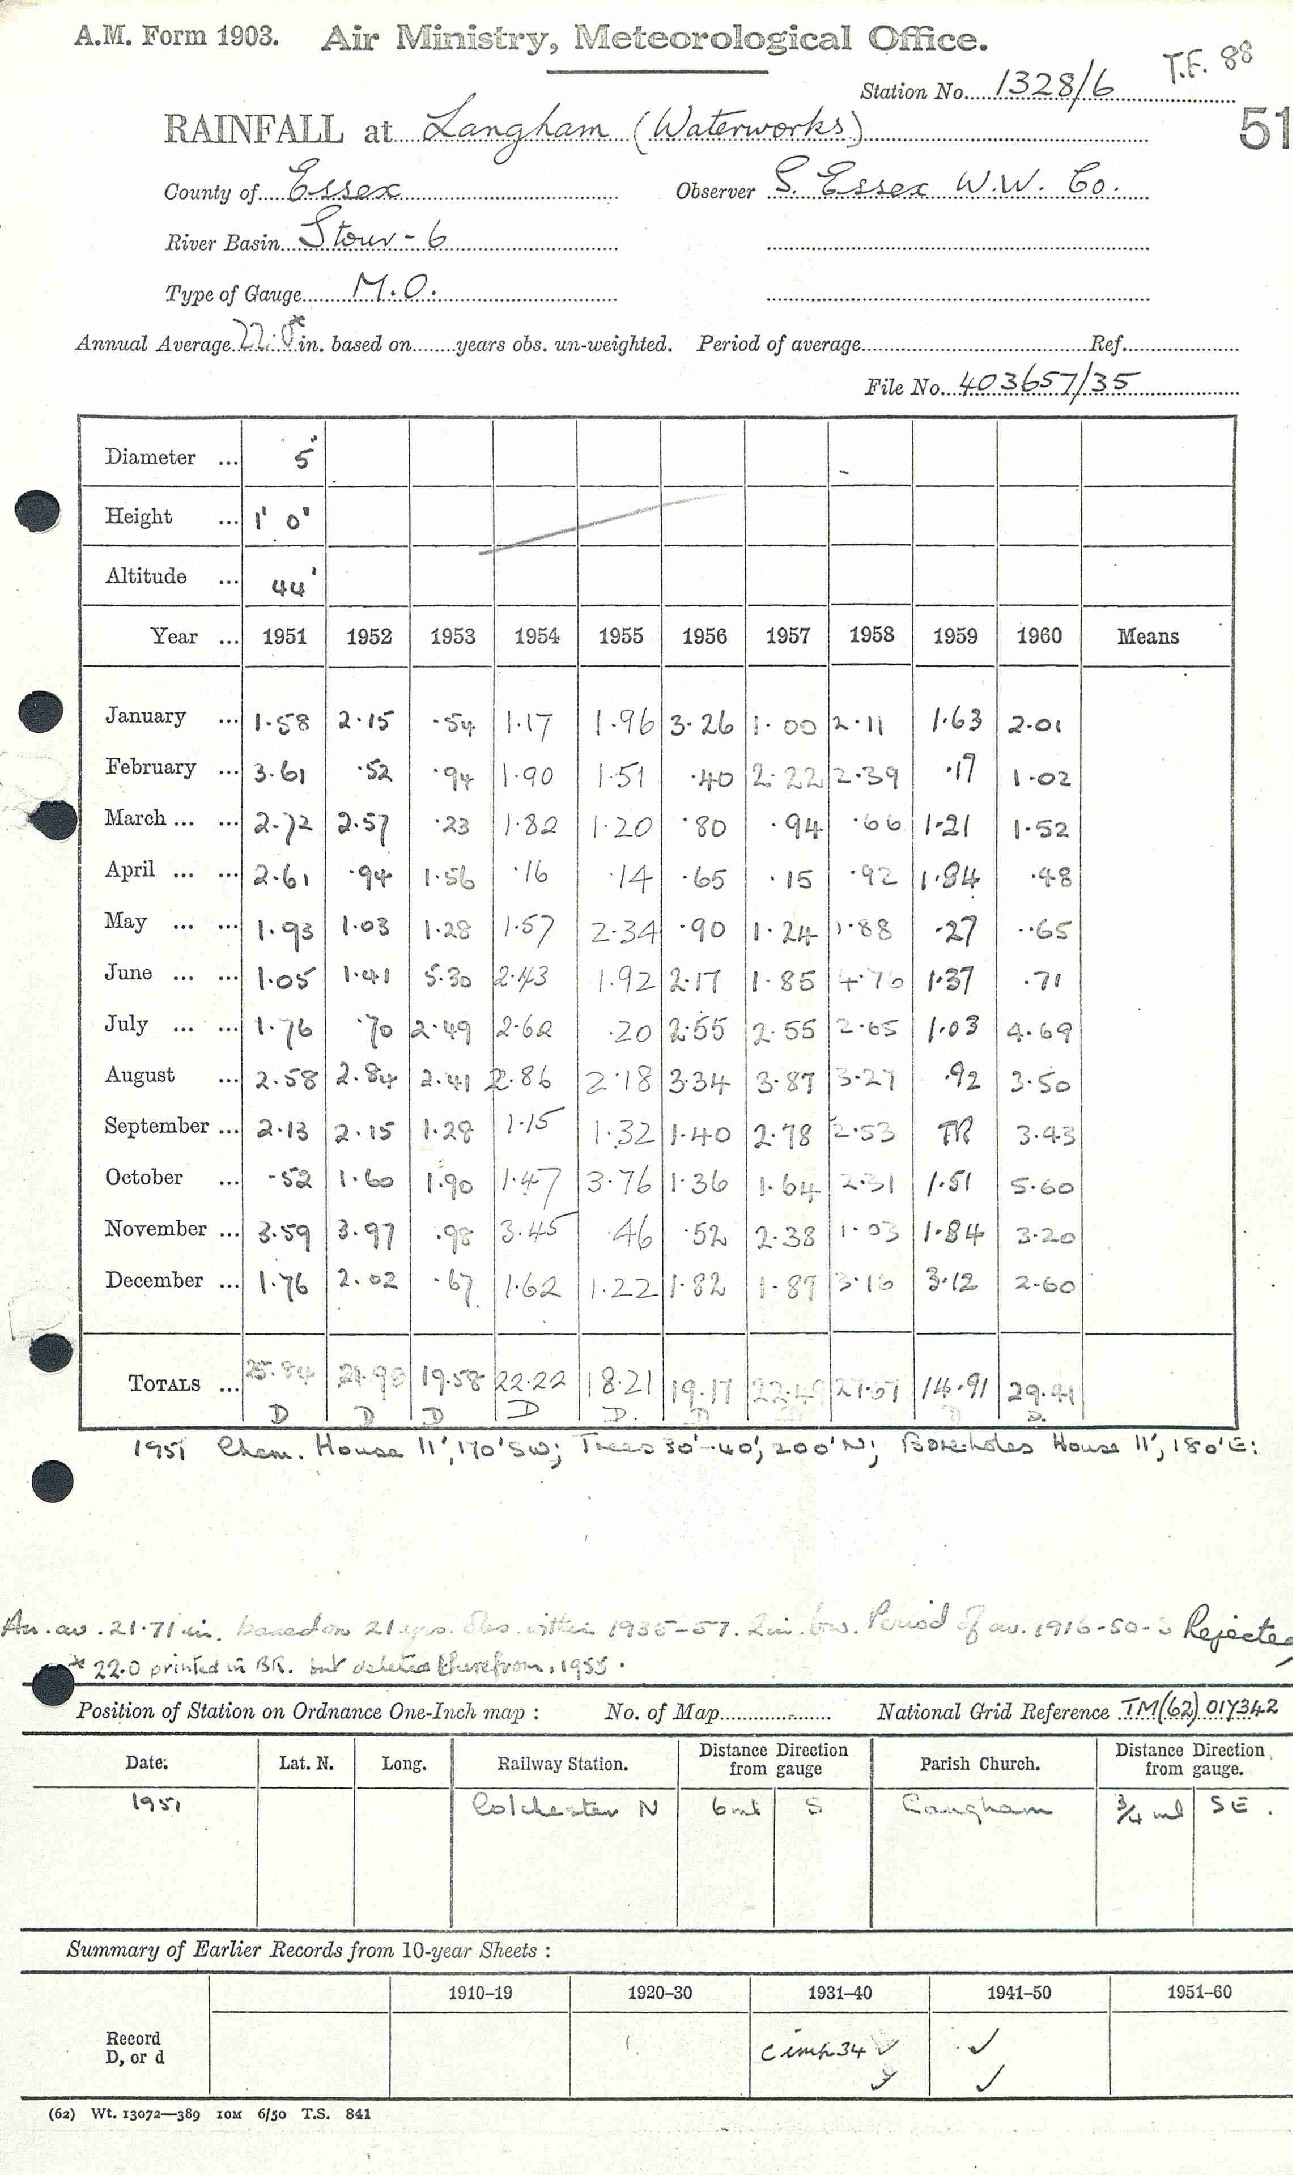 A.M. Form 1903. Air Ministry, Meteorological Office.
T.F. 88
Station No. 1328/6
RAINFALL at Langham (Waterworks)
51
County of Essex Observer S. Essex W.W. Co.
River Basin Stour - 6
Type of Gauge M.O.
Annual Average 22.0* in. based on years obs. un-weighted. Period of average Ref.
File No. 403657/35
Diameter ... 5"
Height ... 1' 0"
Altitude ... 44'
Year ... 1951 1952 1953 1954 1955 1956 1957 1958 1959 1960 Means
January ... 1.58 2.15 .54 1.17 1.96 3.26 1.00 2.11 1.63 2.01
February ... 3.61 .52 .94 1.90 1.51 .40 2.22 2.39 .17 1.02
March ... ... 2.72 2.57 .23 1.82 1.20 .80 .94 .66 1.21 1.52
April ... ... 2.61 .94 1.56 .16 .14 .65 .15 .92 1.84 .48
May ... ... 1.93 1.03 1.28 1.57 2.34 .90 1.24 1.88 .27 .65
June ... ... 1.05 1.41 5.30 2.43 1.92 2.17 1.85 4.76 1.37 .71
July ... ... 1.76 .70 2.49 2.62 .20 2.55 2.55 2.65 1.03 4.69
August ... 2.58 2.84 2.41 2.86 2.18 3.34 3.87 3.27 .92 3.50
September ... 2.13 2.15 1.28 1.15 1.32 1.40 2.78 2.53 TR 3.43
October ... .52 1.60 1.90 1.47 3.76 1.36 1.64 2.31 1.51 5.60
November ... 3.59 3.97 .98 3.45 .46 .52 2.38 1.03 1.84 3.20
December ... 1.76 2.02 .67 1.62 1.22 1.82 1.87 3.16 3.12 2.60
TOTALS ... 25.84 21.90 19.58 22.22 18.21 19.17 22.49 27.67 14.91 29.41
D D D D D. D D D.
1951 Chem. House 11', 170' SW; Trees 30'-40', 200' N; Boreholes House 11', 180' E:
An. av. 21.71 in. based on 21 yrs. obs. within 1935-57. Period of av. 1916-50 - Rejected
* 22.0 printed in BR. but deleted therefrom, 1955.
Position of Station on Ordnance One-Inch map : No. of Map National Grid Reference TM(62) 017342
Date. Lat. N. Long. Railway Station. Distance Direction from gauge Parish Church. Distance Direction from gauge.
1951 Colchester N 6 ml S Langham 3/4 ml SE.
Summary of Earlier Records from 10-year Sheets :
1910–19 1920–30 1931–40 1941–50 1951–60
Record D, or d 34 ✓ ✓
✓ ✓
(62) Wt. 13072—389 10M 6/50 T.S. 841